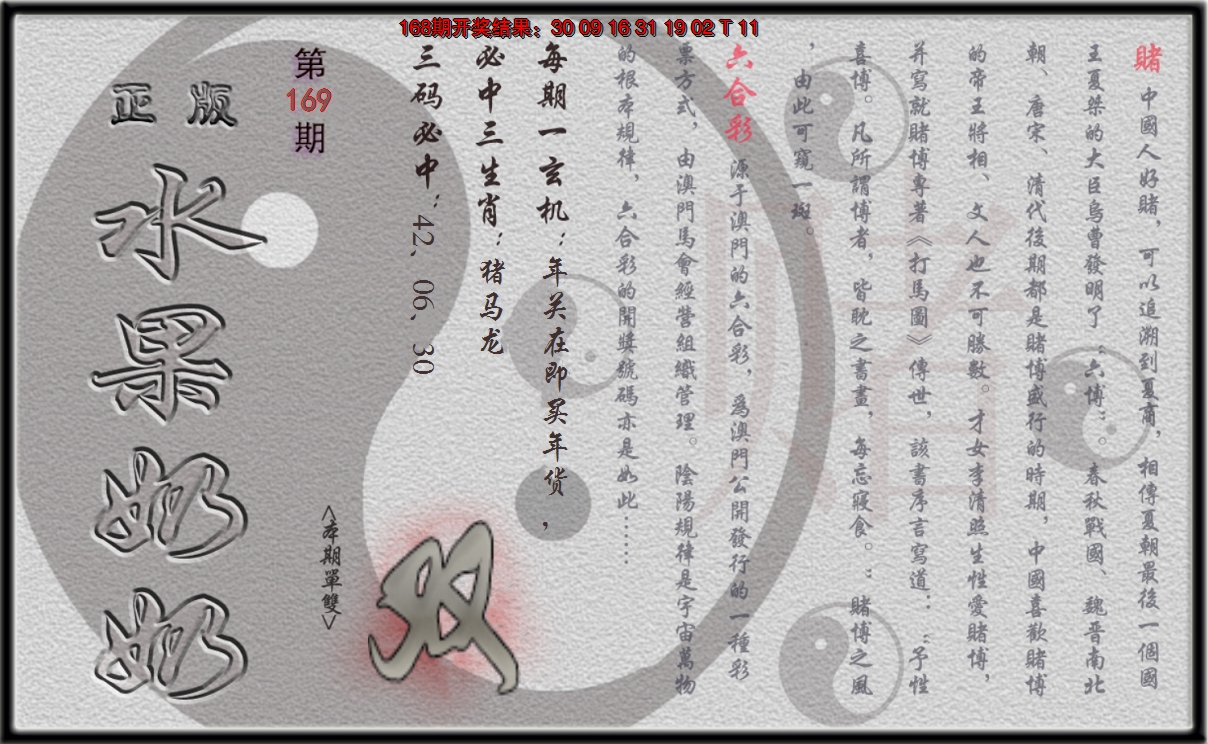 168期开奖结果：30 09 16 31 19 02 T 11
賭 中國人好賭，可以追溯到夏商，相傳夏朝最後一個國
王夏桀的大臣烏曹發明了“六博”。春秋戰國、魏晋南北
朝、唐宋、清代後期都是賭博盛行的時期，中國喜歡賭博
的帝王將相、文人也不可勝數。才女李清照生性愛賭博，
并寫就賭博專著《打馬圖》傳世，該書序言寫道：“予性
喜博。凡所謂博者，皆耽之書畫，每忘寢食。：賭博之風
，由此可窺一斑。
六合彩 源于澳門的六合彩，爲澳門公開發行的一種彩
票方式，由澳門馬會經營組織管理。陰陽規律是宇宙萬物
的根本規律，六合彩的開獎號碼亦是如此……
每期一玄机：年关在即买年货，
必中三生肖：猪马龙
三码必中：42，06，30
第
169
期
<本期單雙>
双
正版
水果奶奶